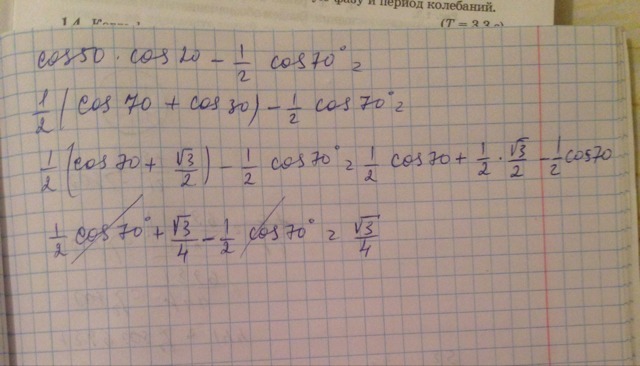 фазу и период колебаний.
1.4.
(T = 3,3 с)
cos 50 · cos 20 - 1/2 cos 70° =
1/2 (cos 70 + cos 30) - 1/2 cos 70° =
1/2 (cos 70 + √3/2) - 1/2 cos 70° = 1/2 cos 70 + 1/2 · √3/2 - 1/2 cos 70
1/2 cos 70° + √3/4 - 1/2 cos 70° = √3/4